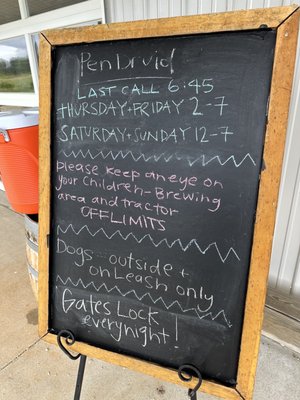 Pen Druid
LAST CALL 6:45
THURSDAY + FRIDAY 2-7
SATURDAY + SUNDAY 12-7
please keep an eye on
your children - Brewing
area and tractor
OFF LIMITS
Dogs outside +
on Leash only
Gates Lock
everynight!